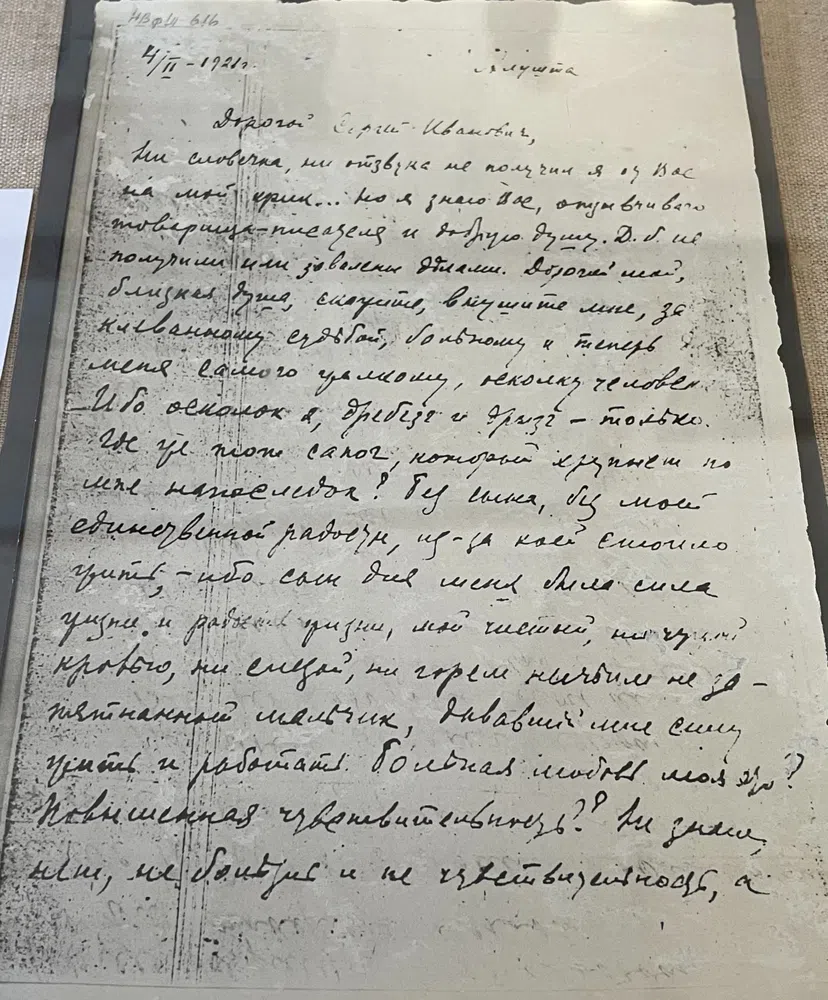 НВФ Ш 616
4/II - 1921 г.
Алушта
Дорогой Сергей Иванович,
Ни словечка, ни отзвука не получил я от Вас
на мой крик... Но я знаю Вас, отзывчивого
товарища-писателя и добрую душу. Д. б. не
получили или завалены делами. Дорогой мой,
близкая душа, скажите, внушите мне, за
клеванному судьбой, больному и теперь
меня самого жалкому, осколку человек
Ибо осколок я, дребезг и дрызг – только.
Где же тот сапог, который хрупнет по
мне напоследок? Без сына, без моей
единственной радости, из-за коей стоило
жить, – ибо сын для меня была сила
жизни и радость жизни, мой чистый, ни чужой
кровью, ни слезой, ни горем ничьим не за-
пятнанный мальчик, дававший мне силу
жить и работать. Больная любовь моя это?
Повышенная чувствительность?? Не знаю,
нет, не болезнь и не чувствительность, а